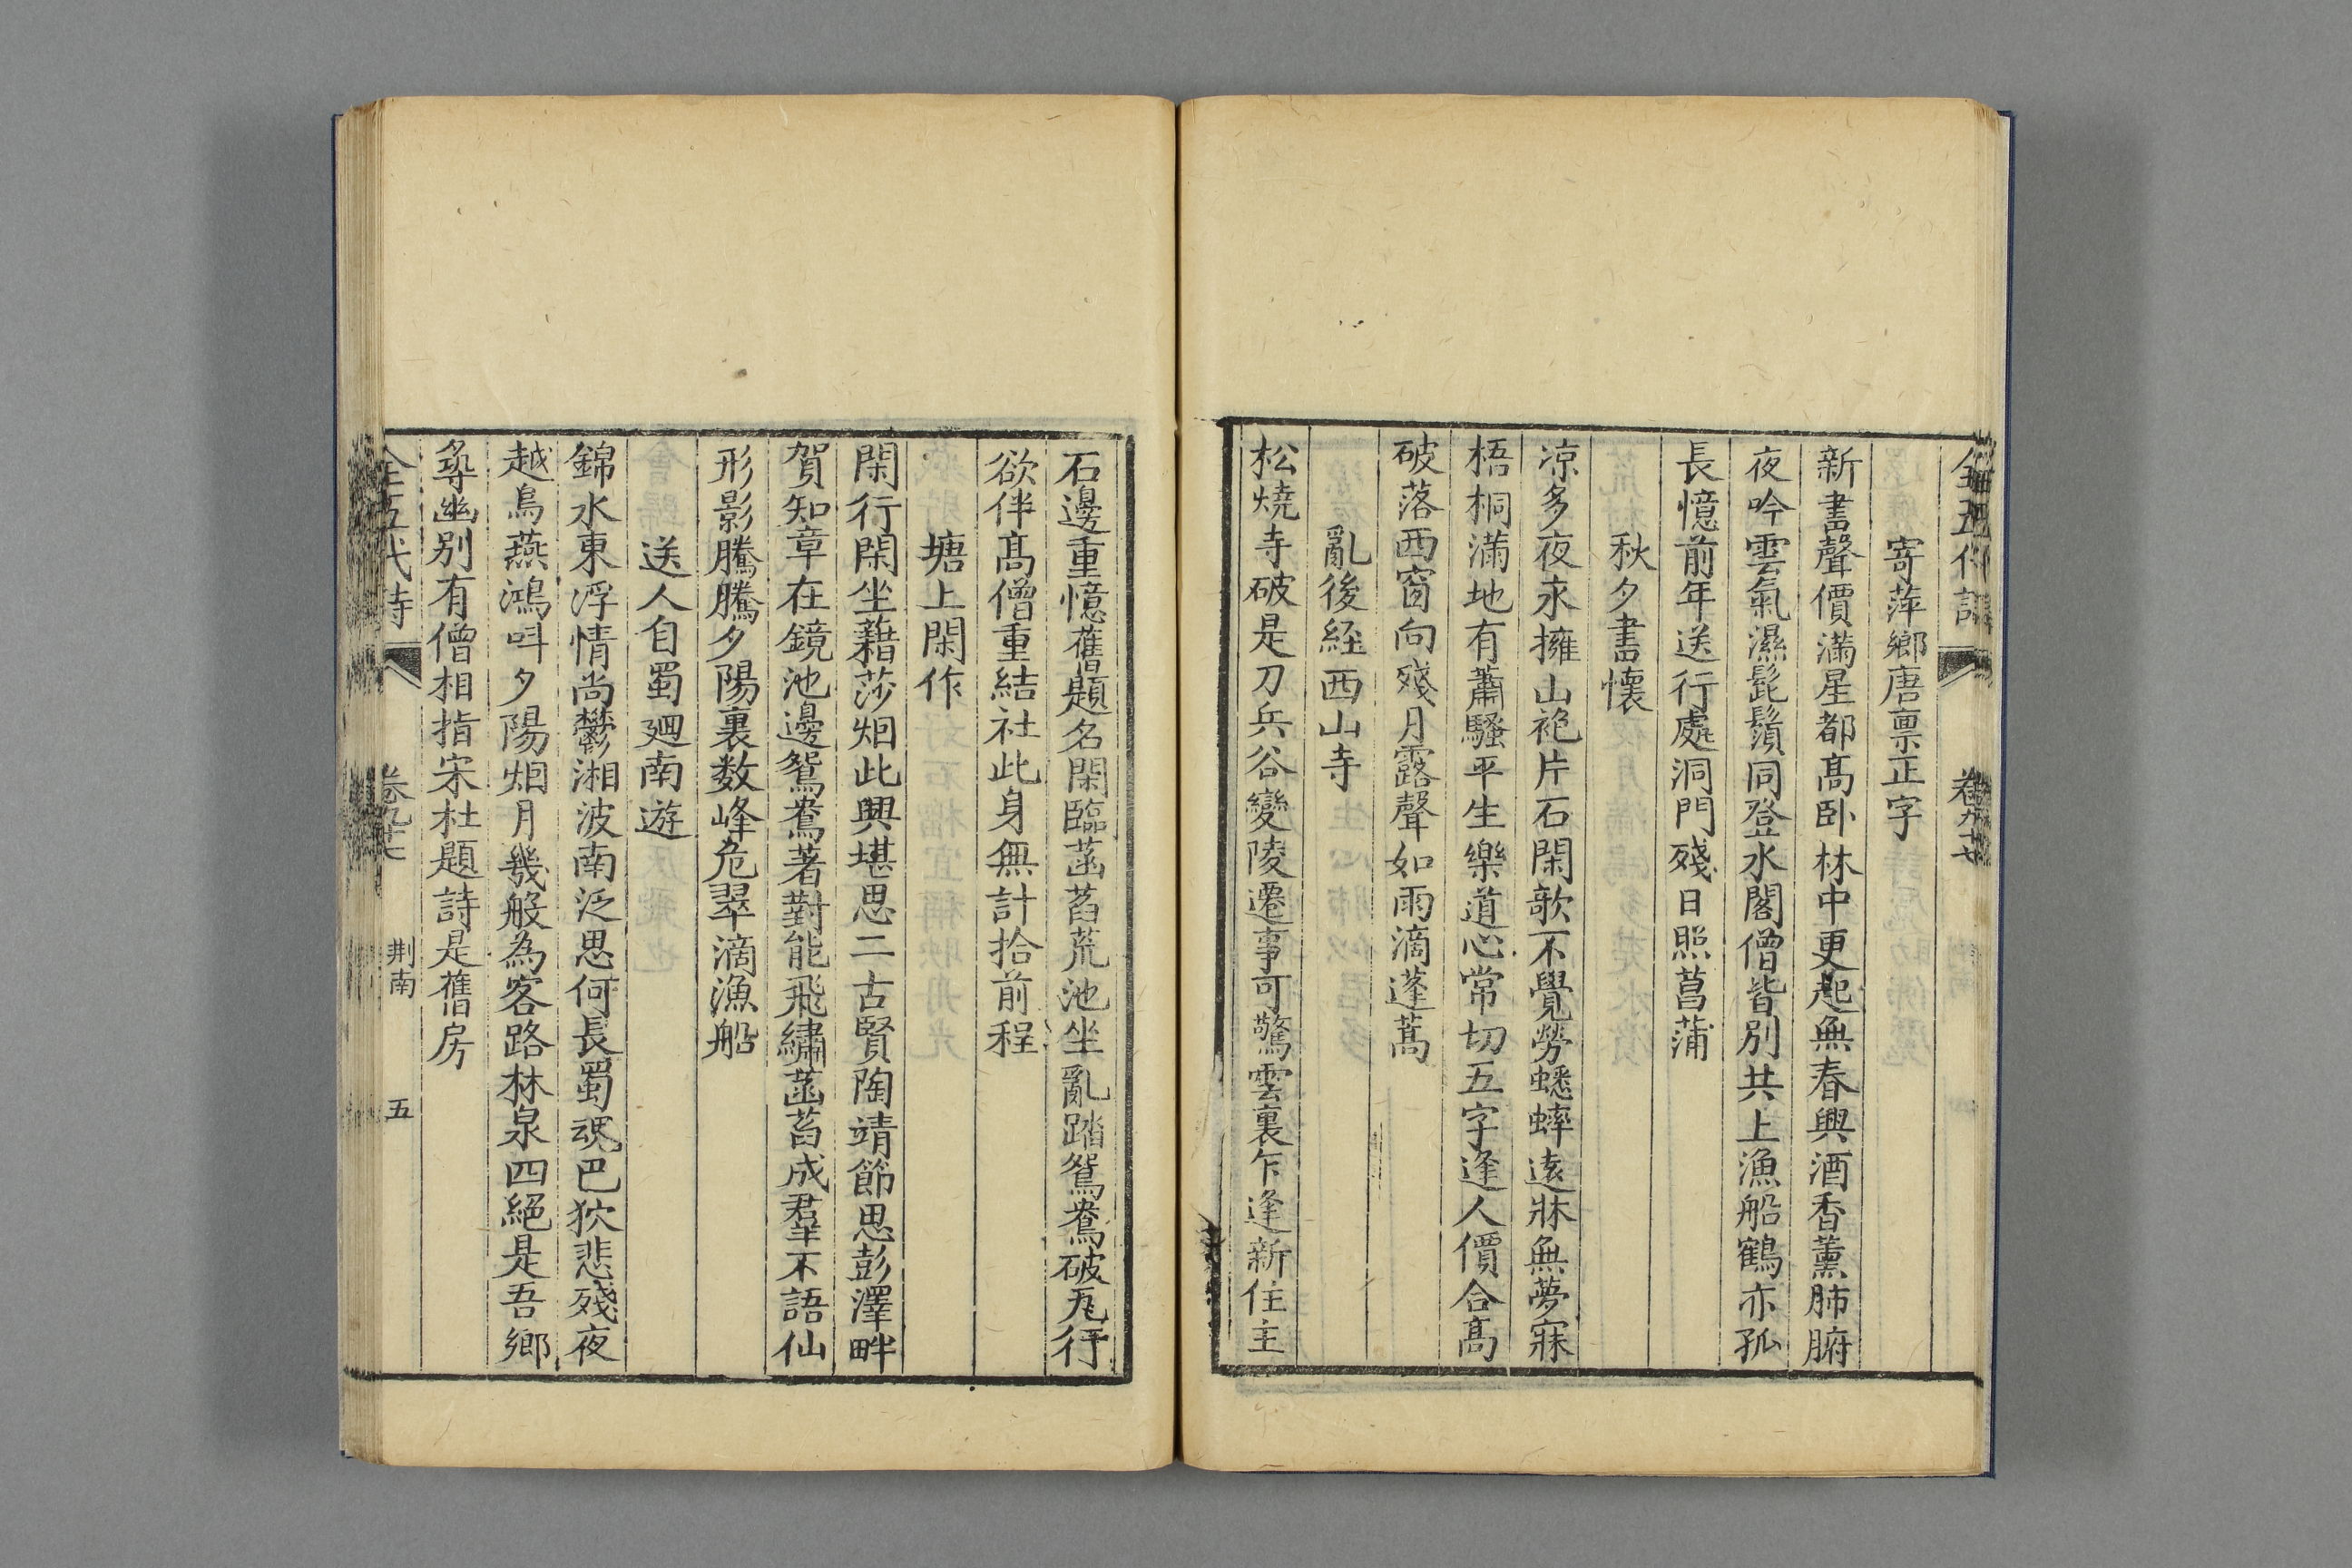 全五代詩 卷九十七
寄萍鄉唐禀正字
新書聲價滿星都髙卧林中更起無春興酒香薰肺腑
夜吟雲氣濕髭鬚同登水閣僧皆別共上漁船鶴亦孤
長憶前年送行處洞門殘日照菖蒲
秋夕書懷
凉多夜永擁山袍片石閑歌不覺勞蟋蟀遠牀無夢寐
梧桐滿地有蕭騷平生樂道心常切五字逢人價合髙
破落西窗向殘月露聲如雨滴蓬蒿
亂後経西山寺
松燒寺破是刀兵谷變陵遷事可驚雲裏乍逢新住主
石邊重憶舊題名閑臨菡萏荒池坐亂踏鴛鴦破瓦行
欲伴髙僧重結社此身無計拾前程
塘上閑作
閑行閑坐藉莎烟此興堪思二古賢陶靖節思彭澤畔
賀知章在鏡池邊鴛鴦著對能飛繡菡萏成羣不語仙
形影騰騰夕陽裏数峰危翠滴漁船
送人自蜀廻南遊
錦水東浮情尚鬱湘波南泛思何長蜀魂巴狖悲殘夜
越鳥燕鴻呌夕陽烟月幾般為客路林泉四絕是吾鄉
尋幽別有僧相指宋杜題詩是舊房
全五代詩 卷九十七 荆南 五